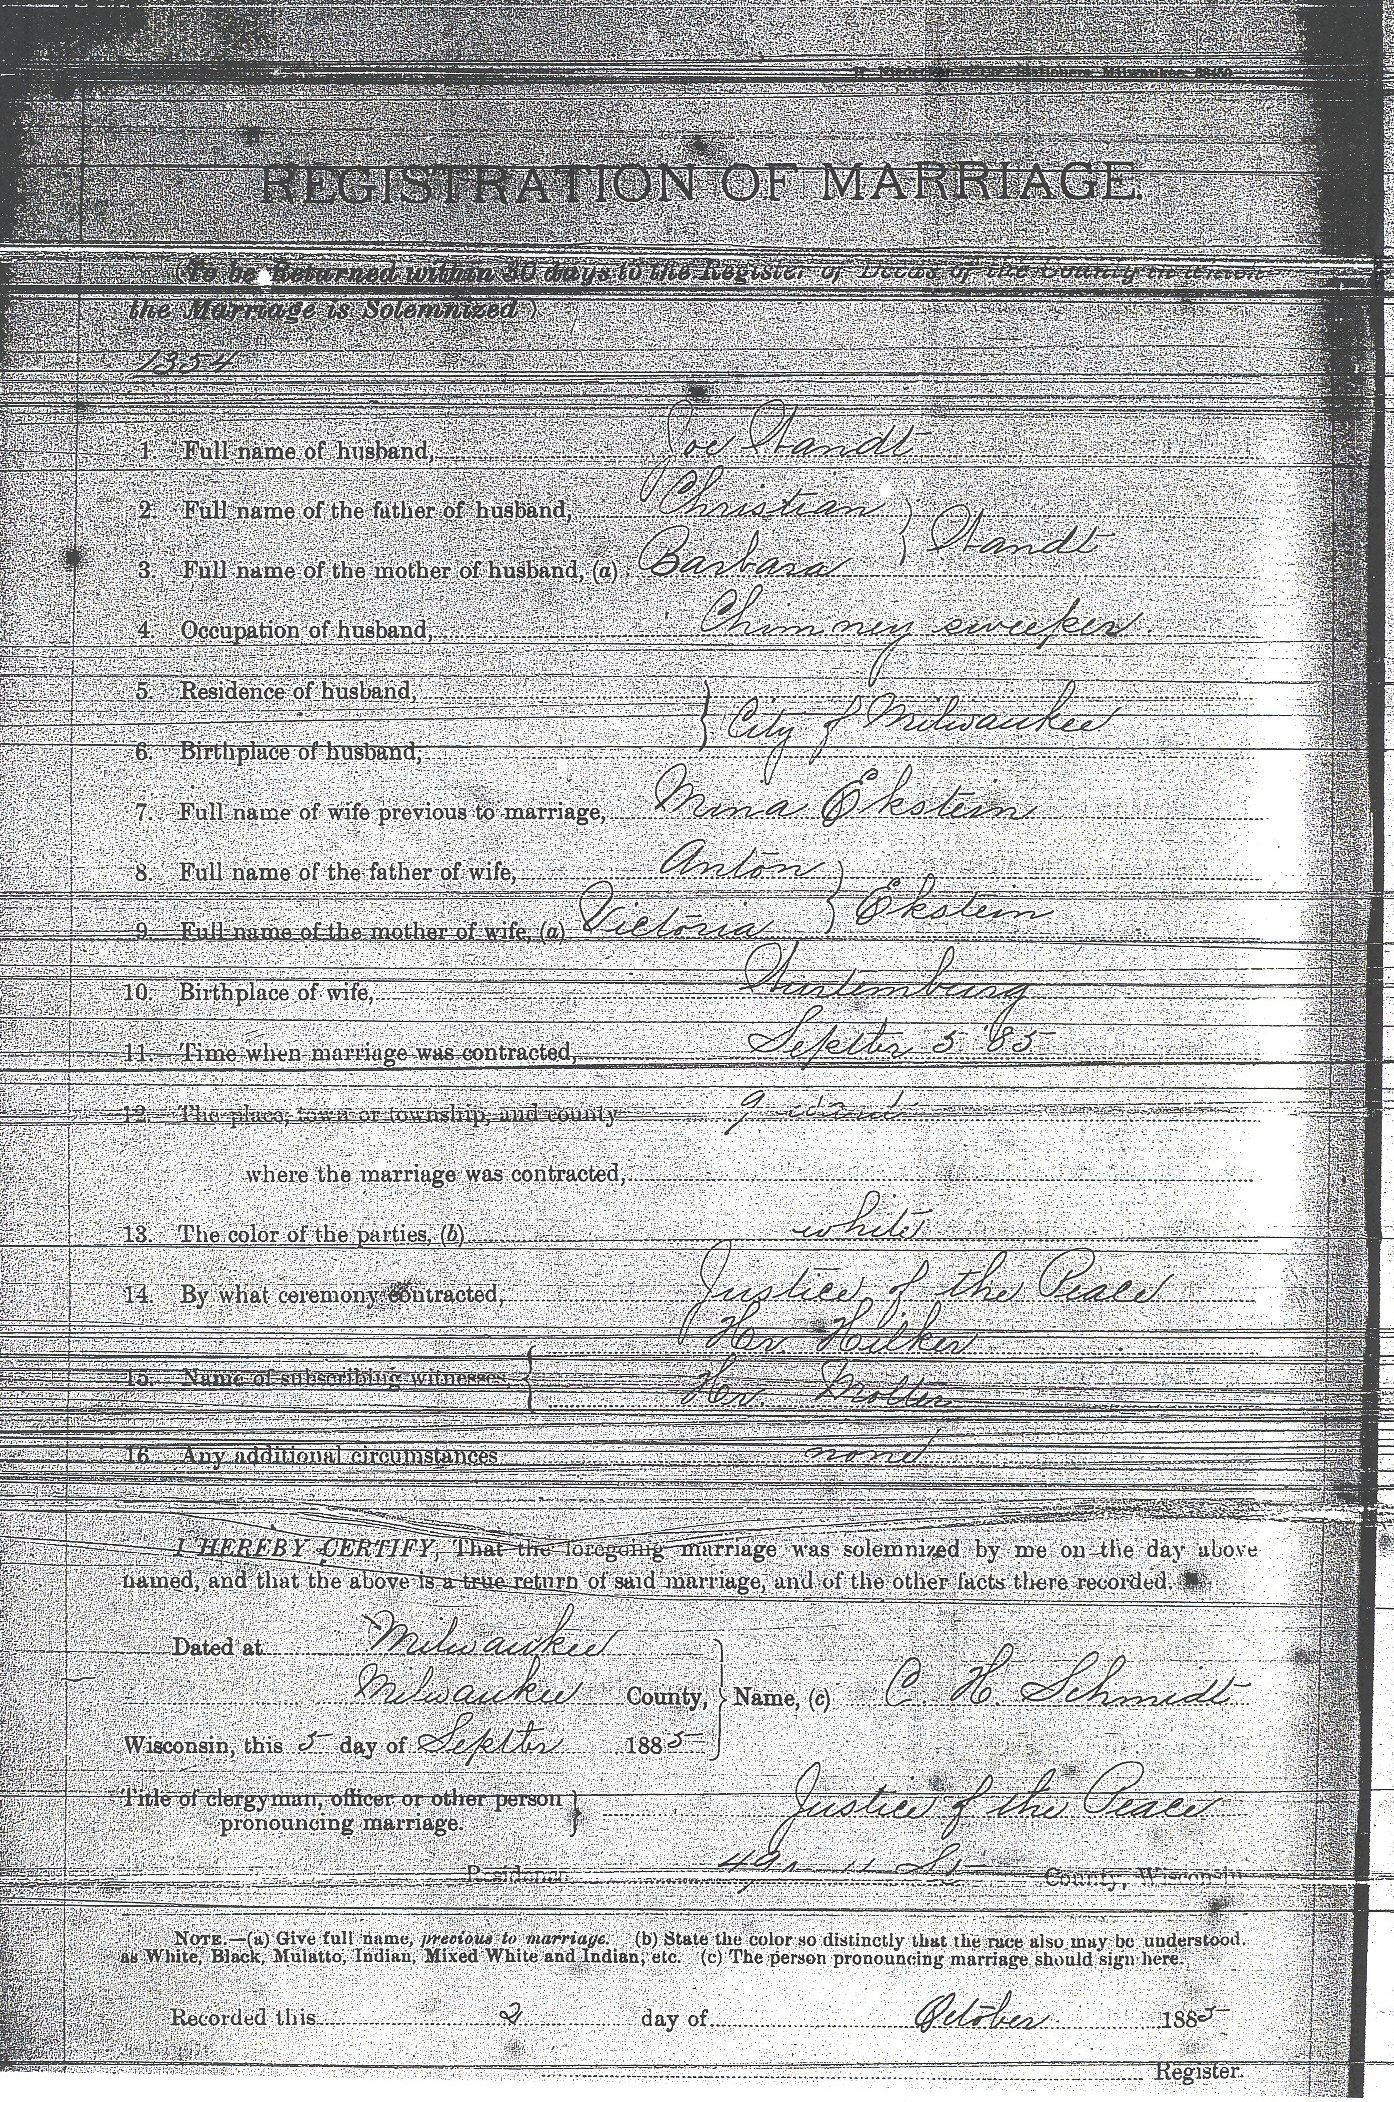 Stationers, Milwaukee
REGISTRATION OF MARRIAGE.
(To be Returned within 30 days to the Register of Deeds of the County in which
the Marriage is Solemnized)
1354
1. Full name of husband, Joe Wandt
2. Full name of the father of husband, Christian } Wandt
3. Full name of the mother of husband, (a) Barbara
4. Occupation of husband, Chimney sweeper
5. Residence of husband, } City of Milwaukee
6. Birthplace of husband,
7. Full name of wife previous to marriage, Mina Ekstein
8. Full name of the father of wife, Anton } Ekstein
9. Full name of the mother of wife, (a) Victoria
10. Birthplace of wife, Wurtemburg
11. Time when marriage was contracted, Septbr 5 '85
12. The place, town or township, and county 9 ward
where the marriage was contracted,
13. The color of the parties, (b) white
14. By what ceremony contracted, Justice of the Peace
Hy. Hilker
15. Name of subscribing witnesses, { Hy. Molter
16. Any additional circumstances none
I HEREBY CERTIFY, That the foregoing marriage was solemnized by me on the day above
named, and that the above is a true return of said marriage, and of the other facts there recorded.
Dated at Milwaukee
Milwaukee County, } Name, (c) C H. Schmidt
Wisconsin, this 5 day of Septbr 1885
Title of clergyman, officer or other person } Justice of the Peace
pronouncing marriage.
Residence 11 St County, Wisconsin
NOTE.—(a) Give full name, previous to marriage. (b) State the color so distinctly that the race also may be understood.
as White, Black, Mulatto, Indian, Mixed White and Indian, etc. (c) The person pronouncing marriage should sign here.
Recorded this 2 day of October 1885
Register.